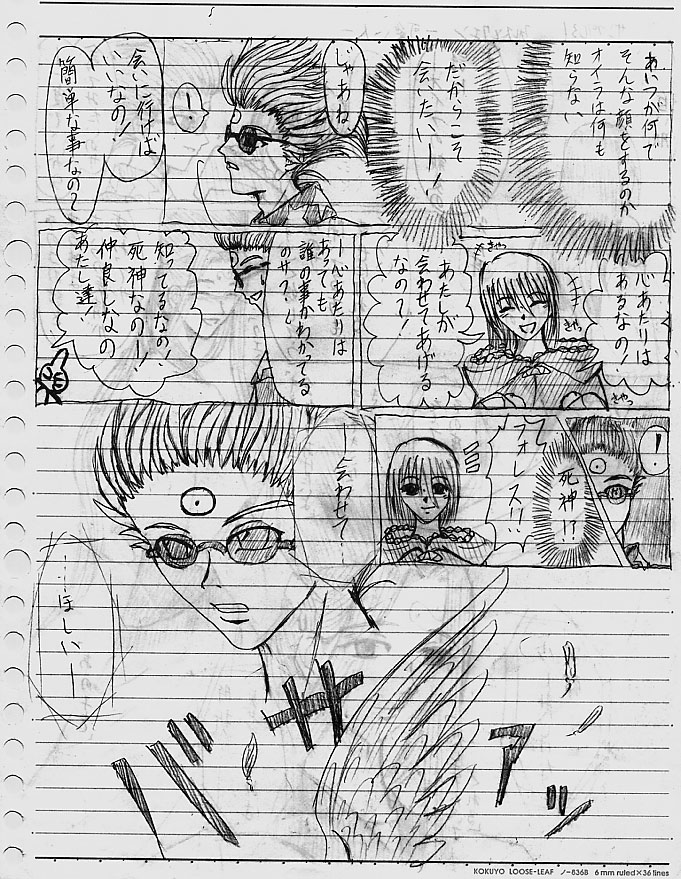 あいつが何で
そんな顔をするのか
オイラは何も
知らない
だからこそ
会いたいー!
じゃあね
!
会いに行けば
いいなの!
簡単な事なの?
心あたりは
あるなの!
きゃっ
きゃっ
きゃっ
あたしが
会わせてあげる
なの?!
ー心あたりは
あっても
誰の事かわかってる
のサ?
知ってるなの!
死神なのー!
仲良しなの
あたし達!
!
死神!?
ラオレス!!
ー会わせて
……ほしいー
バサアッ
KOKUYO LOOSE-LEAF ノ-836B 6 mm ruled×36 lines